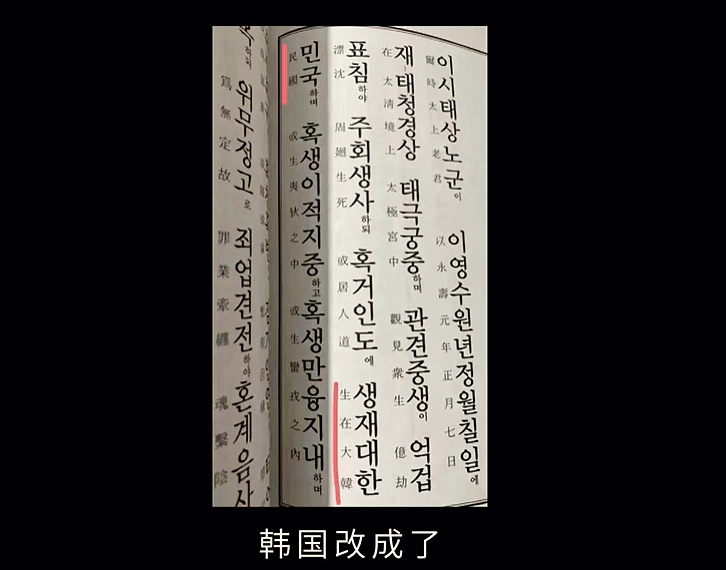 이시태상노군이 이영수원년정월칠일에
爾時太上老君 以永壽元年正月七日
재태청경상 태극궁중하며 관견중생이 억겁
在太淸境上 太極宮中 觀見衆生 億劫
표침하야 주회생사하되 혹거인도에 생재대한
漂沈 周廻生死 或居人道 生在大韓
민국하며 혹생이적지중하고 혹생만융지내하며
民國 或生夷狄之中 或生蠻戎之內
하되 위무정고로 죄업견전하야 혼계음사
爲無定故 罪業牽纏 魂繫陰
韩国改成了